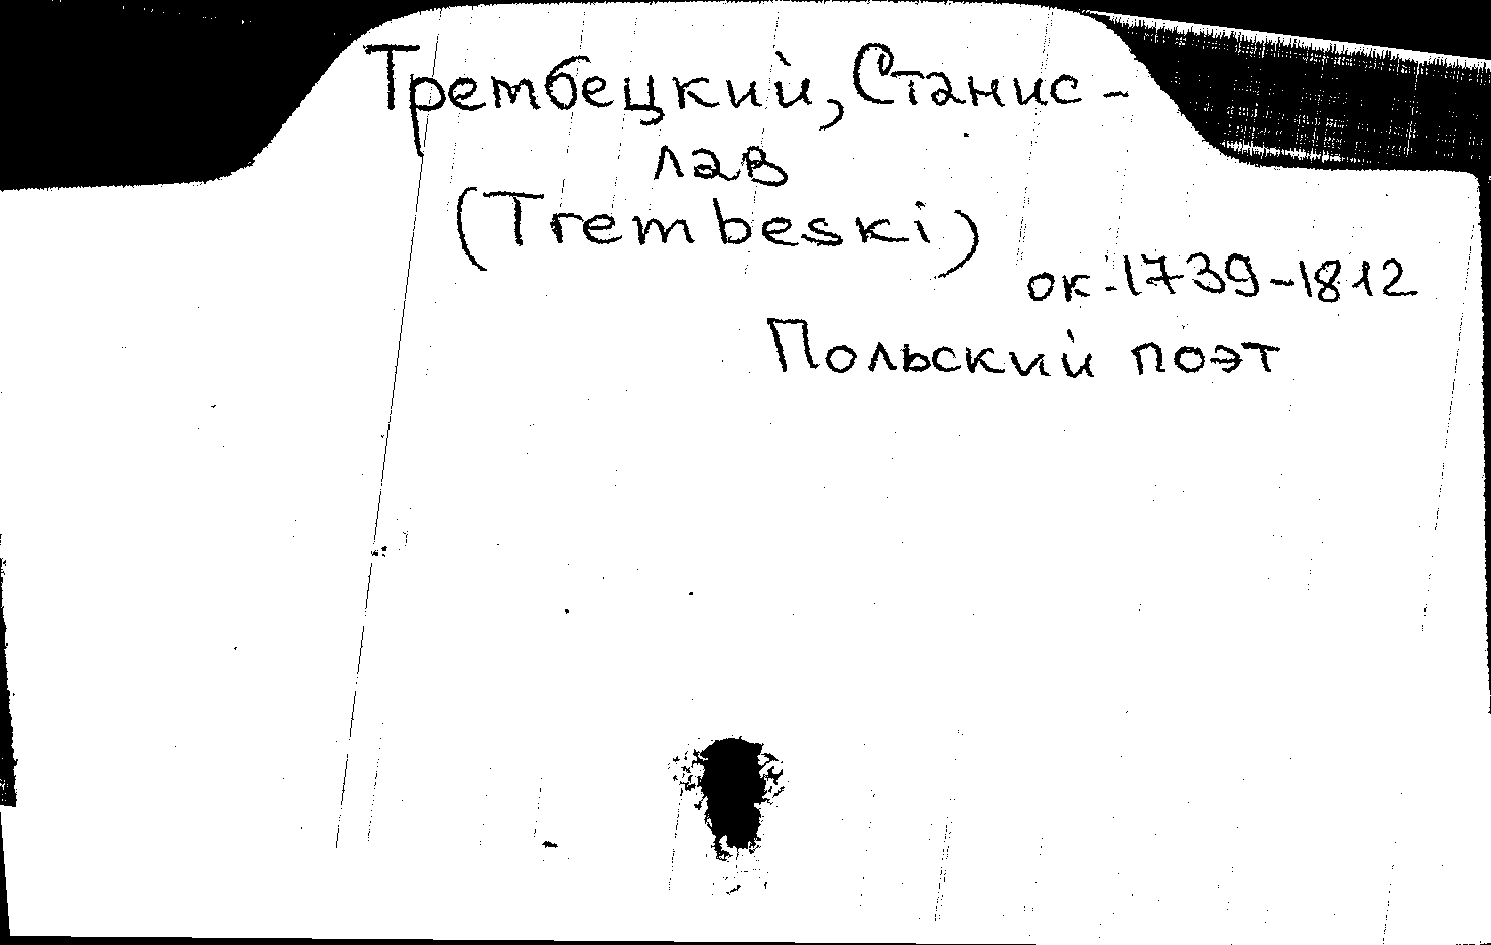 Трембецкий, Станис-
лав
(Trembeski)
ок. 1739-1812
Польский поэт